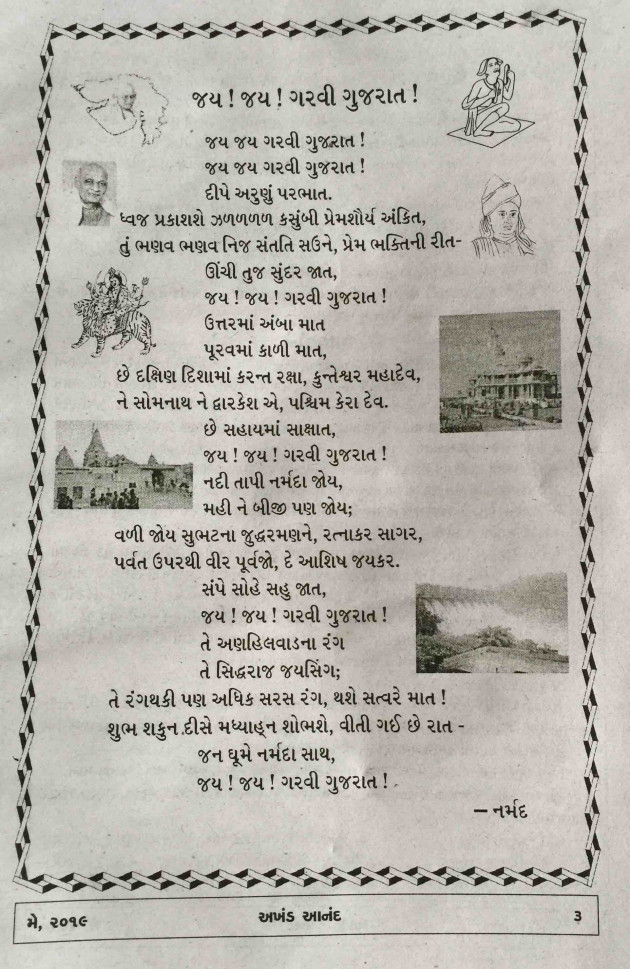 જય ! જય ! ગરવી ગુજરાત !
જય જય ગરવી ગુજરાત !
જય જય ગરવી ગુજરાત !
દીપે અરુણું પરભાત.
ધ્વજ પ્રકાશશે ઝળળળળ કસુંબી પ્રેમશૌર્ય અંકિત,
તું ભણવ ભણવ નિજ સંતતિ સઉને, પ્રેમ ભક્તિની રીત-
ઊંચી તુજ સુંદર જાત,
જય ! જય ! ગરવી ગુજરાત !
ઉત્તરમાં અંબા માત
પૂરવમાં કાળી માત,
છે દક્ષિણ દિશામાં કરન્ત રક્ષા, કુન્તેશ્વર મહાદેવ,
ને સોમનાથ ને દ્વારકેશ એ, પશ્ચિમ કેરા દેવ.
છે સહાયમાં સાક્ષાત,
જય ! જય ! ગરવી ગુજરાત !
નદી તાપી નર્મદા જોય,
મહી ને બીજી પણ જોય;
વળી જોય સુભટના જુદ્ધરમણને, રત્નાકર સાગર,
પર્વત ઉપરથી વીર પૂર્વજો, દે આશિષ જયકર.
સંપે સોહે સહુ જાત,
જય ! જય ! ગરવી ગુજરાત !
તે અણહિલવાડના રંગ
તે સિદ્ધરાજ જયસિંગ;
તે રંગથકી પણ અધિક સરસ રંગ, થશે સત્વરે માત !
શુભ શકુન દીસે મધ્યાહ્ન શોભશે, વીતી ગઈ છે રાત -
જન ઘૂમે નર્મદા સાથ,
જય ! જય ! ગરવી ગુજરાત !
– નર્મદ
મે, ૨૦૧૯ અખંડ આનંદ ૩